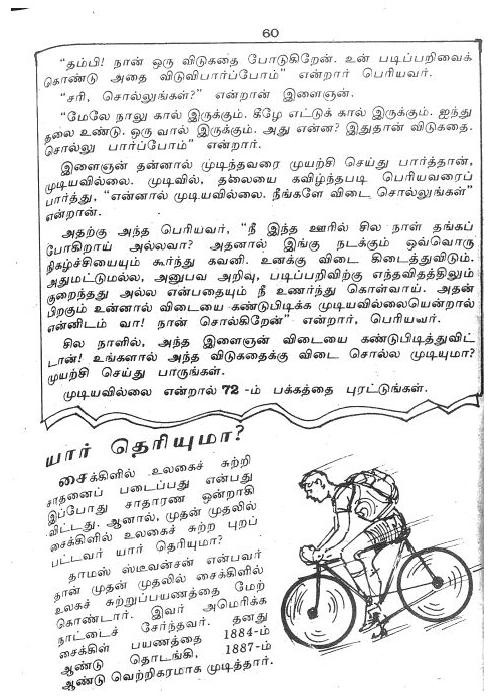 60
“தம்பி! நான் ஒரு விடுகதை போடுகிறேன். உன் படிப்பறிவைக்
கொண்டு அதை விடுவிபார்ப்போம்” என்றார் பெரியவர்.
“சரி, சொல்லுங்கள்?” என்றான் இளைஞன்.
“மேலே நாலு கால் இருக்கும். கீழே எட்டுக் கால் இருக்கும். ஐந்து
தலை உண்டு. ஒரு வால் இருக்கும். அது என்ன? இதுதான் விடுகதை.
சொல்லு பார்ப்போம்” என்றார்.
இளைஞன் தன்னால் முடிந்தவரை முயற்சி செய்து பார்த்தான்,
முடியவில்லை. முடிவில், தலையை கவிழ்ந்தபடி பெரியவரைப்
பார்த்து, “என்னால் முடியவில்லை. நீங்களே விடை சொல்லுங்கள்”
என்றான்.
அதற்கு அந்த பெரியவர், “நீ இந்த ஊரில் சில நாள் தங்கப்
போகிறாய் அல்லவா? அதனால் இங்கு நடக்கும் ஒவ்வொரு
நிகழ்ச்சியையும் கூர்ந்து கவனி. உனக்கு விடை கிடைத்துவிடும்.
அதுமட்டுமல்ல, அனுபவ அறிவு, படிப்பறிவிற்கு எந்தவிதத்திலும்
குறைந்தது அல்ல என்பதையும் நீ உணர்ந்து கொள்வாய். அதன்
பிறகும் உன்னால் விடையை கண்டுபிடிக்க முடியவில்லையென்றால்
என்னிடம் வா! நான் சொல்கிறேன்” என்றார், பெரியவர்.
சில நாளில், அந்த இளைஞன் விடையை கண்டுபிடித்துவிட்
டான்! உங்களால் அந்த விடுகதைக்கு விடை சொல்ல முடியுமா?
முயற்சி செய்து பாருங்கள்.
முடியவில்லை என்றால் 72 -ம் பக்கத்தை புரட்டுங்கள்.
யார் தெரியுமா?
சைக்கிளில் உலகைச் சுற்றி
சாதனைப் படைப்பது என்பது
இப்போது சாதாரண ஒன்றாகி
விட்டது. ஆனால், முதன் முதலில்
சைக்கிளில் உலகைச் சுற்ற புறப்
பட்டவர் யார் தெரியுமா?
தாமஸ் ஸ்டீவன்சன் என்பவர்
தான் முதன் முதலில் சைக்கிளில்
உலகச் சுற்றுப்பயணத்தை மேற்
கொண்டார். இவர் அமெரிக்க
நாட்டைச் சேர்ந்தவர். தனது
சைக்கிள் பயணத்தை 1884-ம்
ஆண்டு தொடங்கி, 1887-ம்
ஆண்டு வெற்றிகரமாக முடித்தார்.